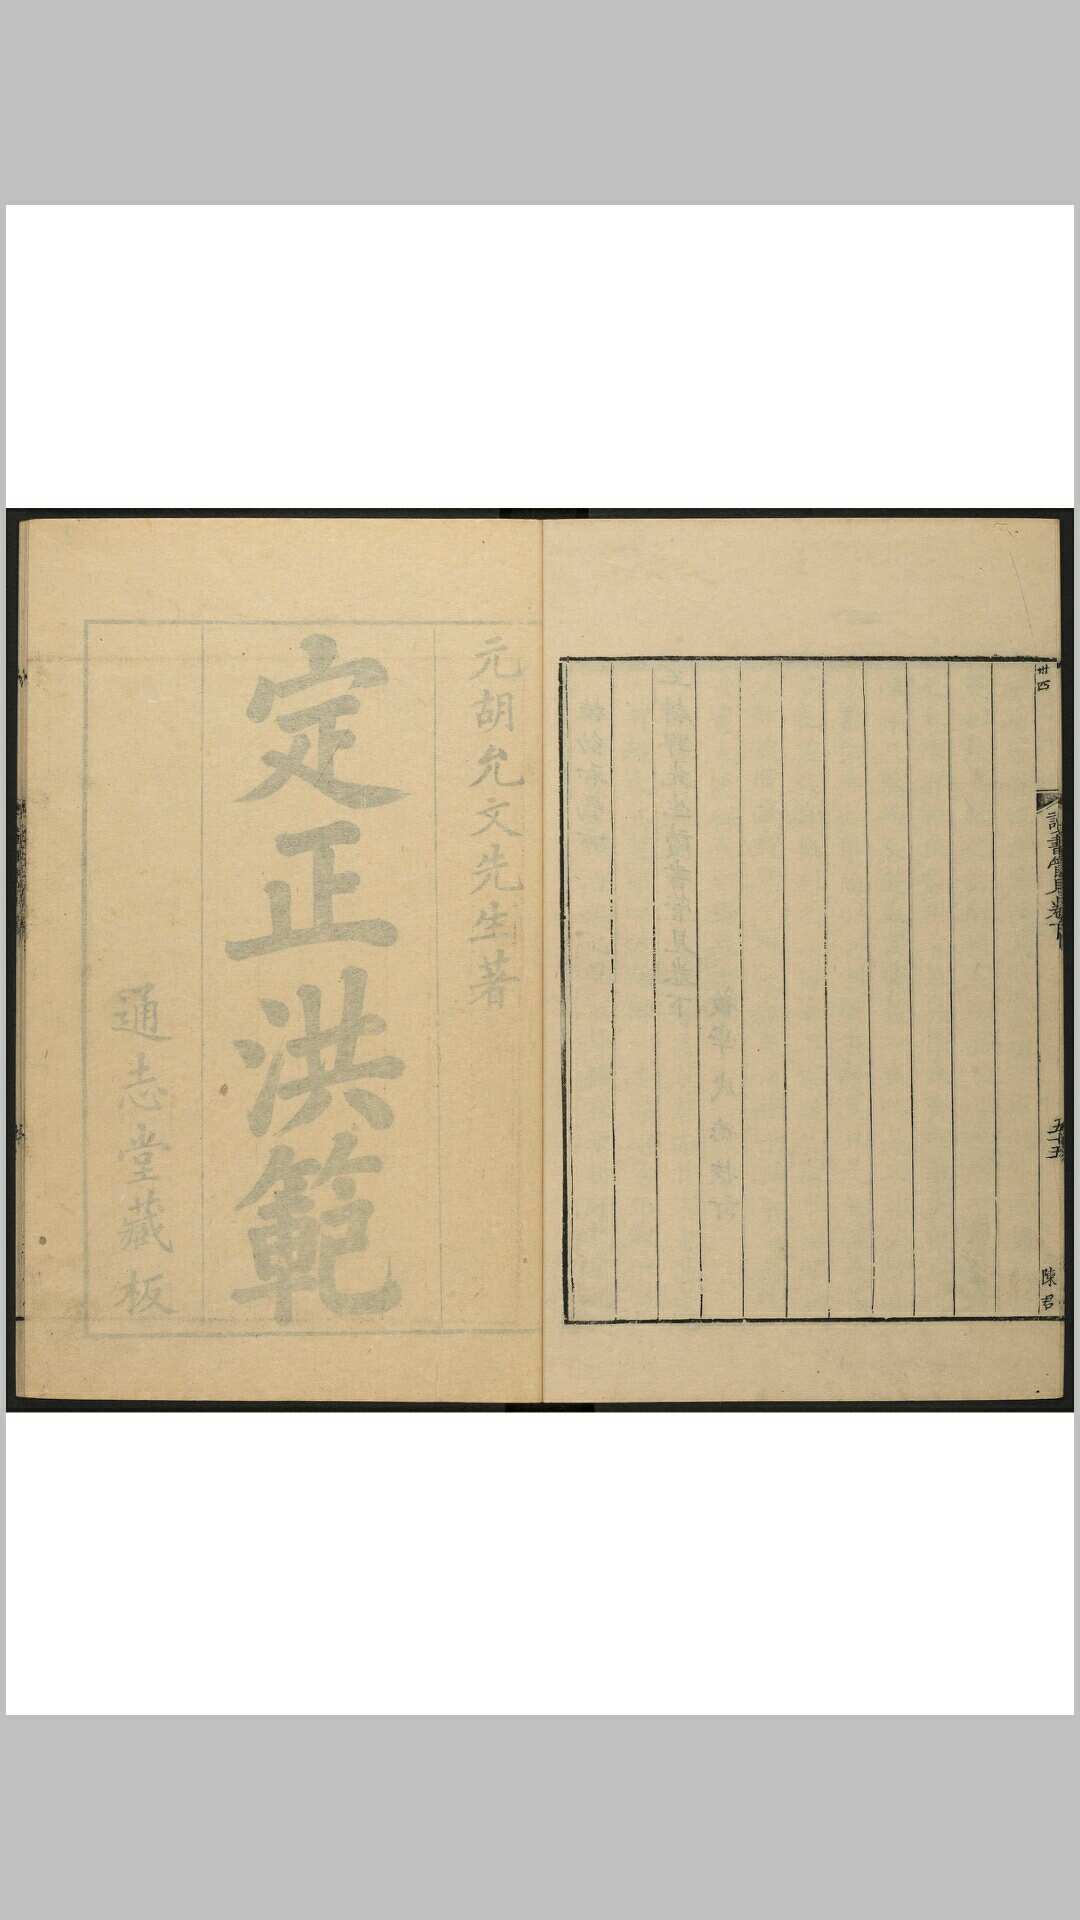 卅四
讀書管見卷下
五十五
陳君
元胡允文先生著
定正洪範
通志堂藏板